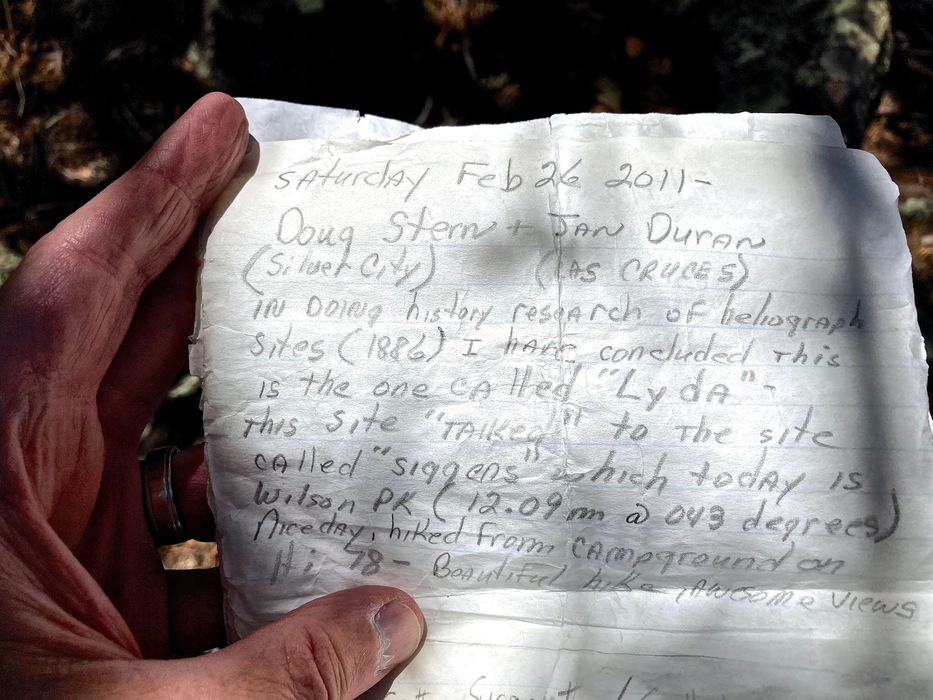 Saturday Feb 26 2011-
Doug Stern + Jan Duran
(Silver City) (Las Cruces)
in doing history research of heliograph
sites (1886) I have concluded this
is the one called "Lyda"-
this site "Talked" to the site
called "siggens" which today is
Wilson PK (12.09 mn @ 043 degrees)
Nice day, hiked from campground on
Hi 78 - Beautiful hike, awesome views